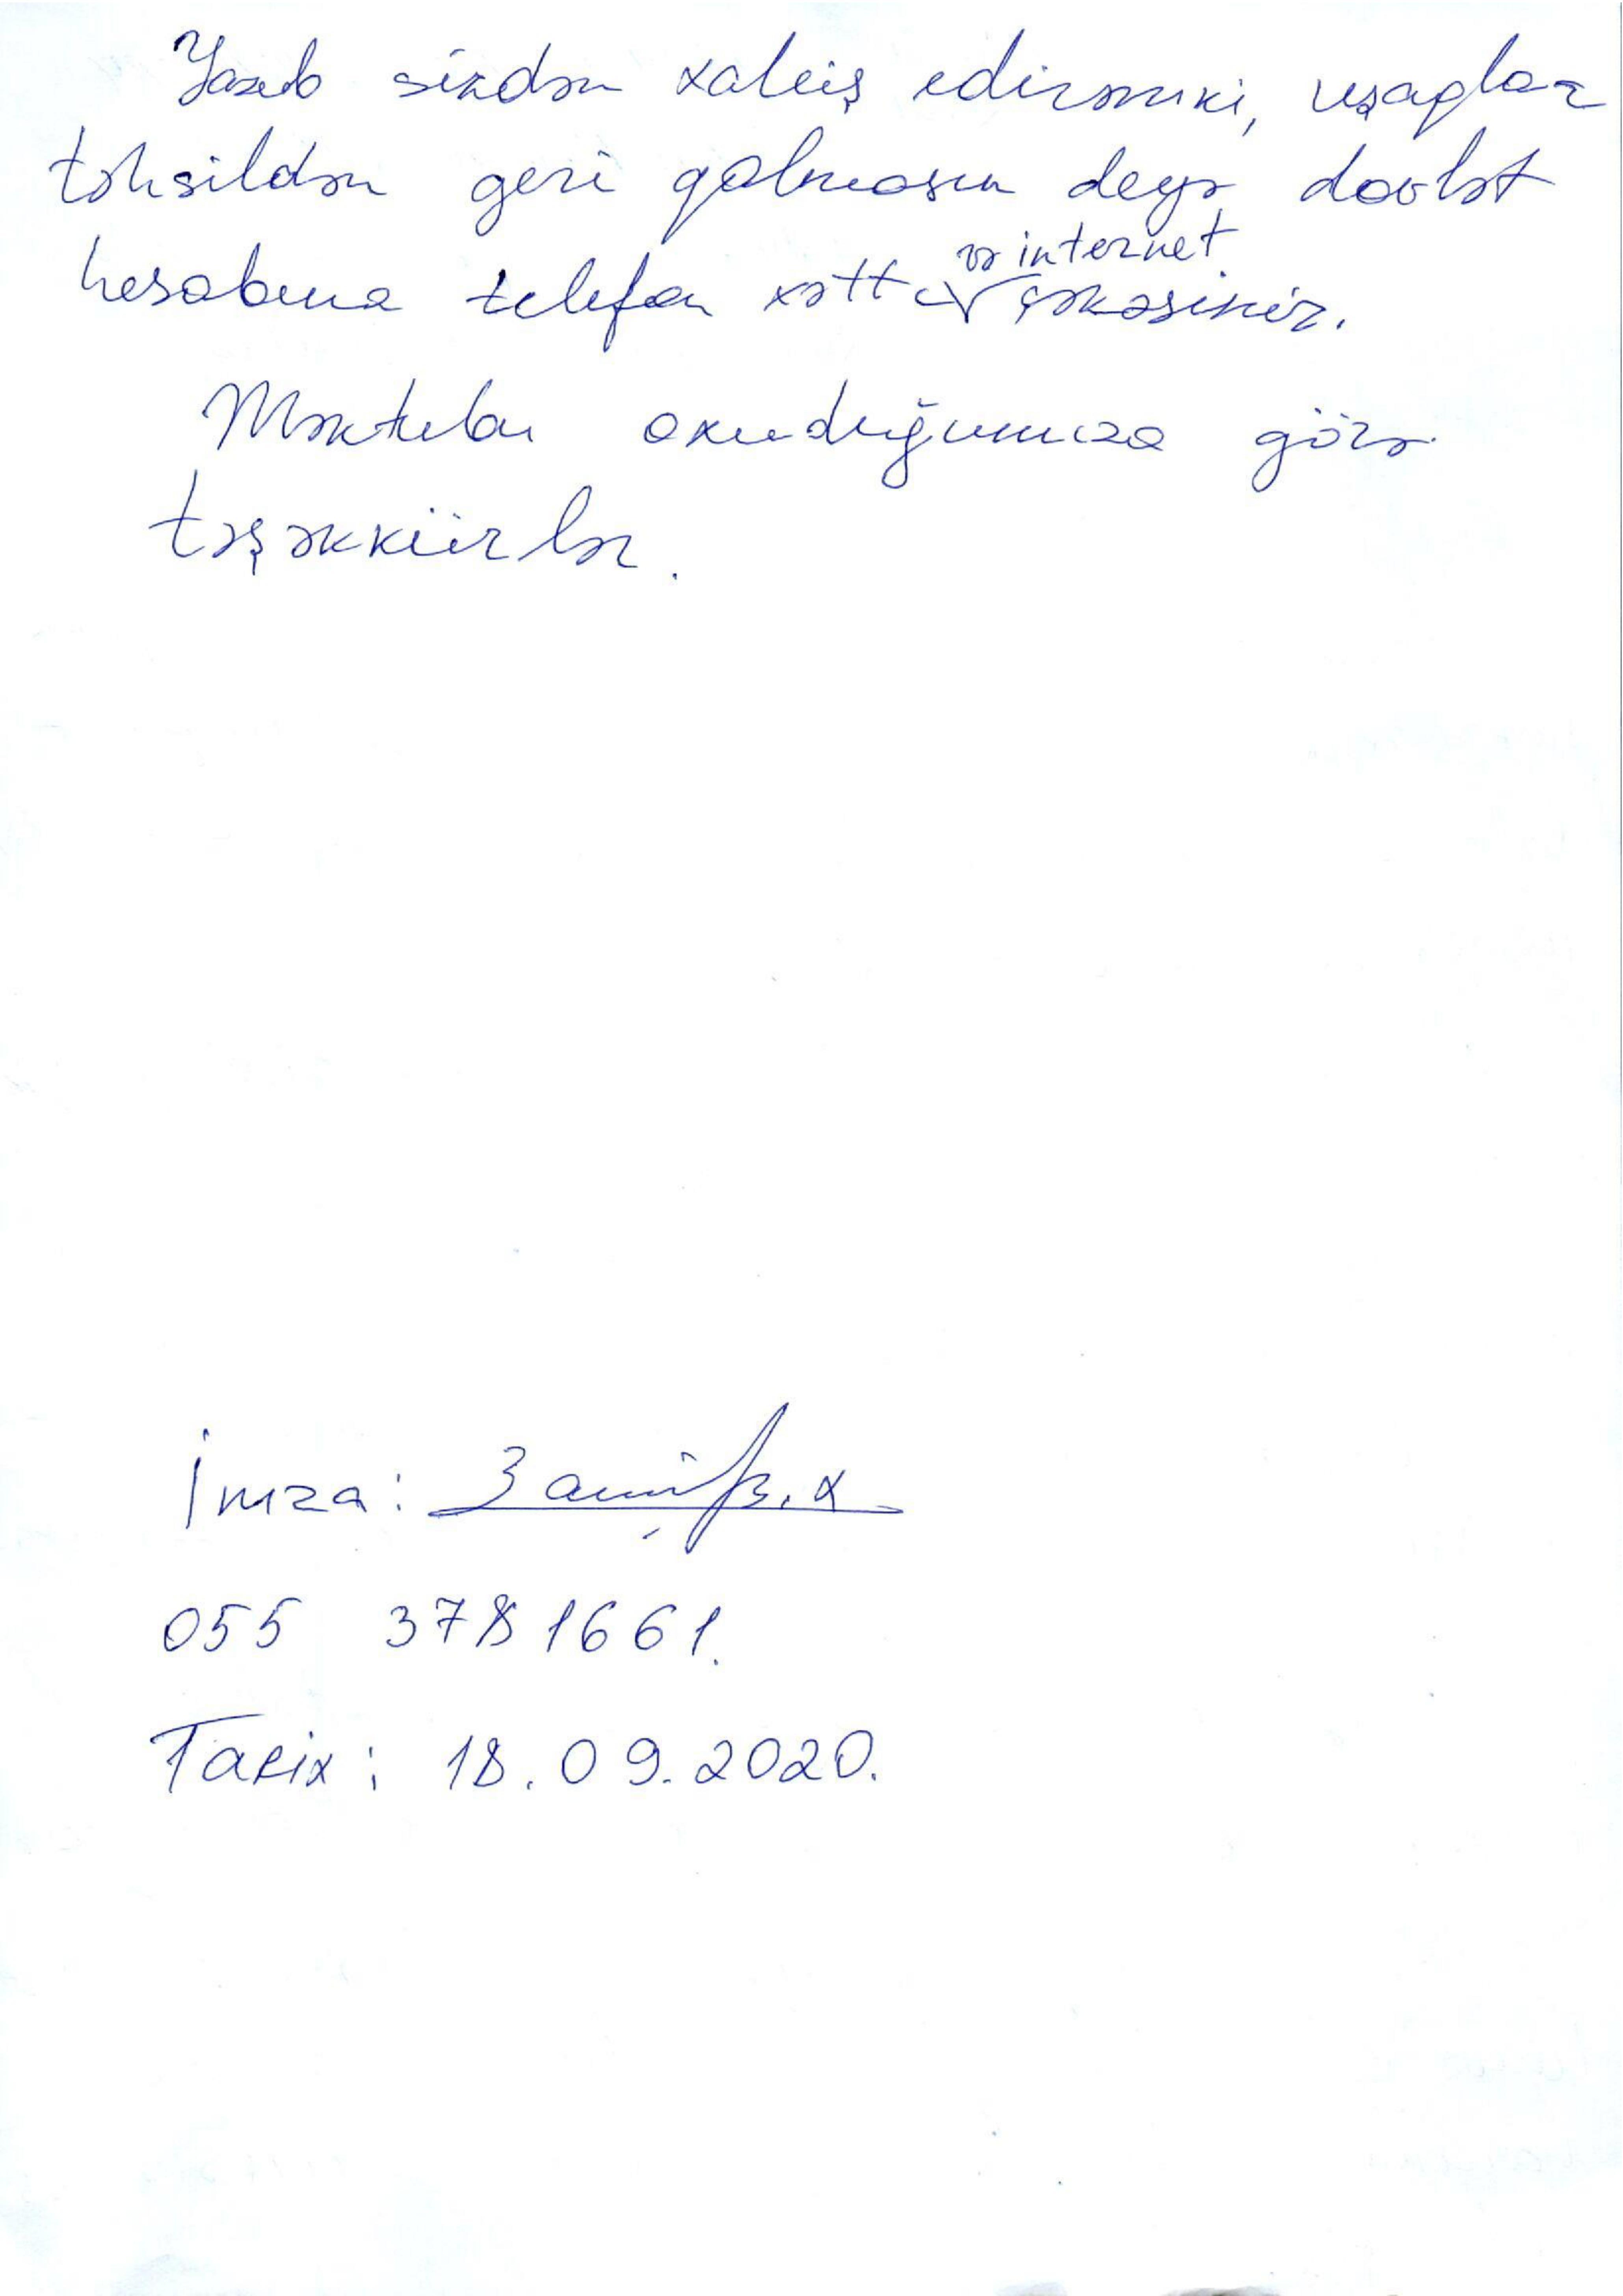 Yazıb sizdən xaliş edirəmki, uşaqlar
təhsildən geri qalmasın deyə dovlət
hesabına telefon xətti və internet çəkəsiniz.
Məktubu oxuduğunuza görə
təşəkkürlər.
İmza:
055 3781661.
Tarix: 18.09.2020.